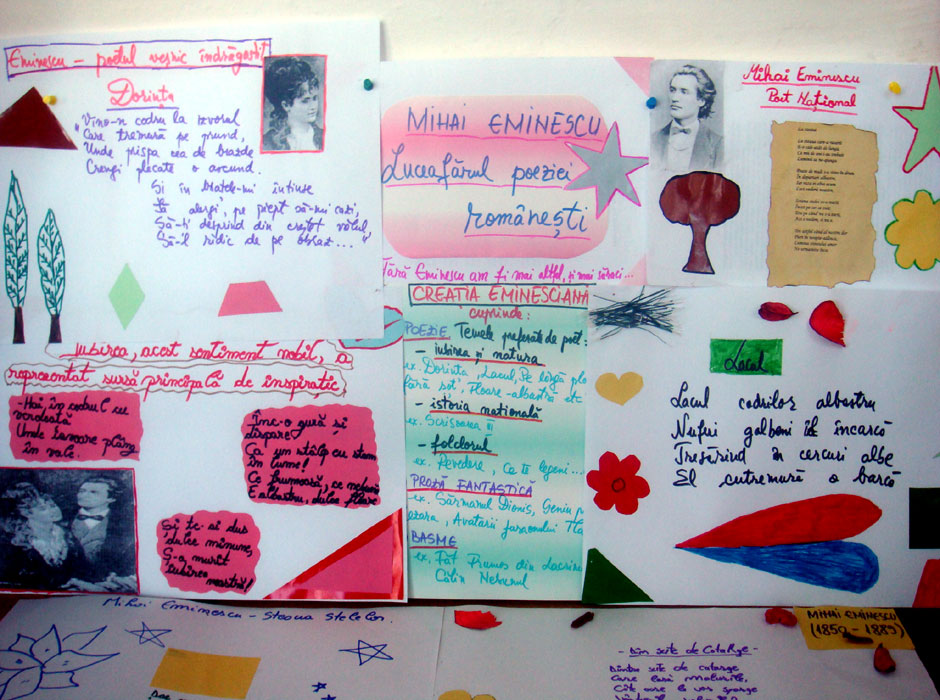 Eminescu – poetul veșnic îndrăgostit
Dorința
"Vino-n codru la izvorul
Care tremură pe prund,
Unde prispa cea de brazde
Crengi plecate o ascund.
Și în brațele-mi întinse
Să alergi, pe piept să-mi cazi,
Să-ți desprind din creștet vălul,
Să-l ridic de pe obraz..."
MIHAI EMINESCU
Luceafărul poeziei
românești
Fără Eminescu am fi mai altfel, și mai săraci...
Mihai Eminescu
Poet Național
La steaua
La steaua care-a răsărit
Iubirea, acest sentiment nobil, a
reprezentat sursă principală de inspirație
-Hai, în codrul cu
verdeață
Unde izvoare plâng
în vale.
Înc-o gură și
dispare
Ca un stâlp eu stam
în lume!
Ce frumoasă, ce nebună
E albastra, dulce floare
Și te-ai dus
dulce minune,
Ș-a murit
iubirea
noastră!
CREAȚIA EMINESCIANĂ
cuprinde:
POEZIE Temele preferate de poet:
– iubirea și natura
ex. Dorința, Lacul, Pe lângă plo
fără soț, Floare-albastră etc
– istoria națională
ex. Scrisoarea III
– folclorul
ex. Revedere, Ce te legeni...
PROZĂ FANTASTICĂ
ex. Sărmanul Dionis, Geniu p
ezara, Avatarii faraonului Tla
BASME
ex. Făt Frumos din Lacrimă
Călin Nebunul
Lacul
Lacul codrilor albastru
Nuferi galbeni îl încarcă
Tresărind în cercuri albe
El cutremură o barcă
Mihai Eminescu – steaua stelelor
MIHAI EMINESCU
(1850 – 1889)
– Din sute de catarge –
Dintre sute de catarge
Care lasă malurile,
Câte oare le vor sparge